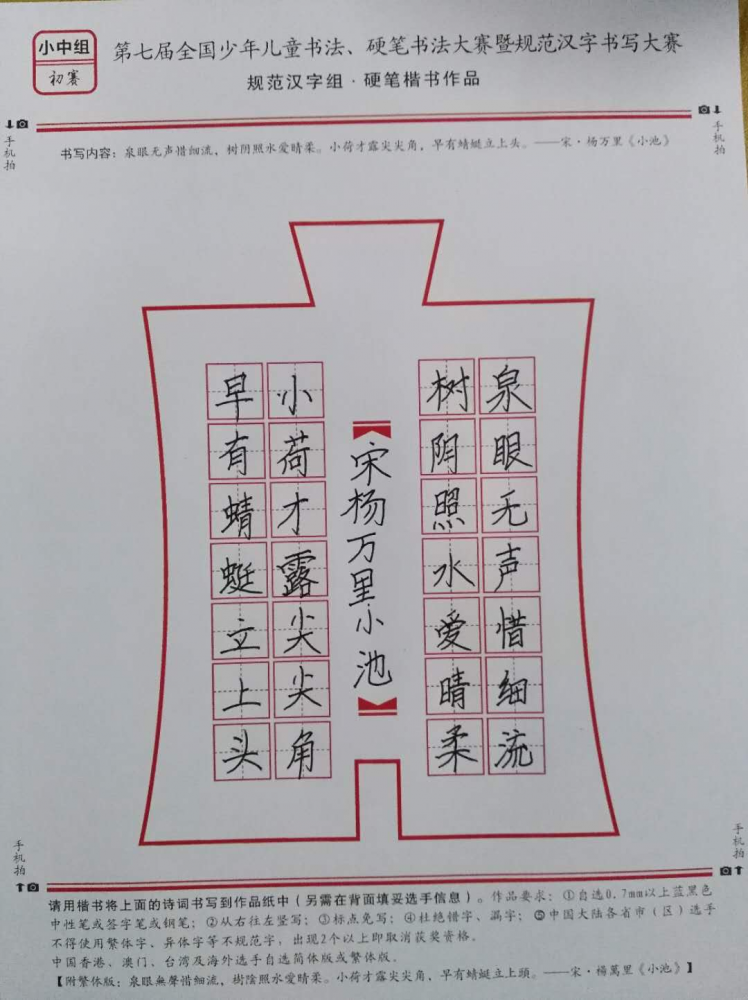 小中组
初赛
第七届全国少年儿童书法、硬笔书法大赛暨规范汉字书写大赛
规范汉字组·硬笔楷书作品
手机拍
手机拍
书写内容：泉眼无声惜细流，树阴照水爱晴柔。小荷才露尖尖角，早有蜻蜓立上头。——宋·杨万里《小池》
泉眼无声惜细流
树阴照水爱晴柔
宋杨万里小池
小荷才露尖尖角
早有蜻蜓立上头
手机拍
手机拍
请用楷书将上面的诗词书写到作品纸中（另需在背面填妥选手信息）。作品要求：①自选0.7mm以上蓝黑色
中性笔或签字笔或钢笔；②从右往左竖写；③标点免写；④杜绝错字、漏字；⑤中国大陆各省市（区）选手
不得使用繁体字、异体字等不规范字，出现2个以上即取消获奖资格。
中国香港、澳门、台湾及海外选手自选简体版或繁体版。
【附繁体版：泉眼無聲惜細流，樹陰照水愛晴柔。小荷才露尖尖角，早有蜻蜓立上頭。——宋·楊萬里《小池》】